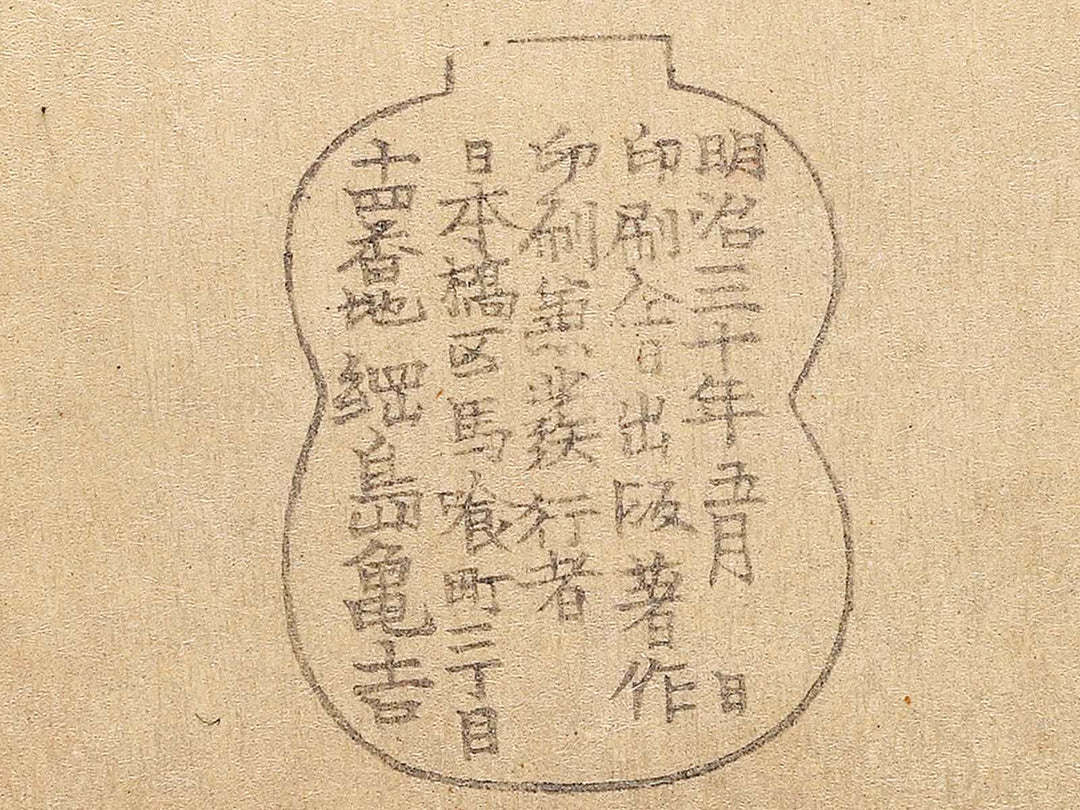 明治三十年五月 日
印刷仝日出版著作
印刷兼発行者
日本橋区馬喰町二丁目
十四番地 綱島亀吉